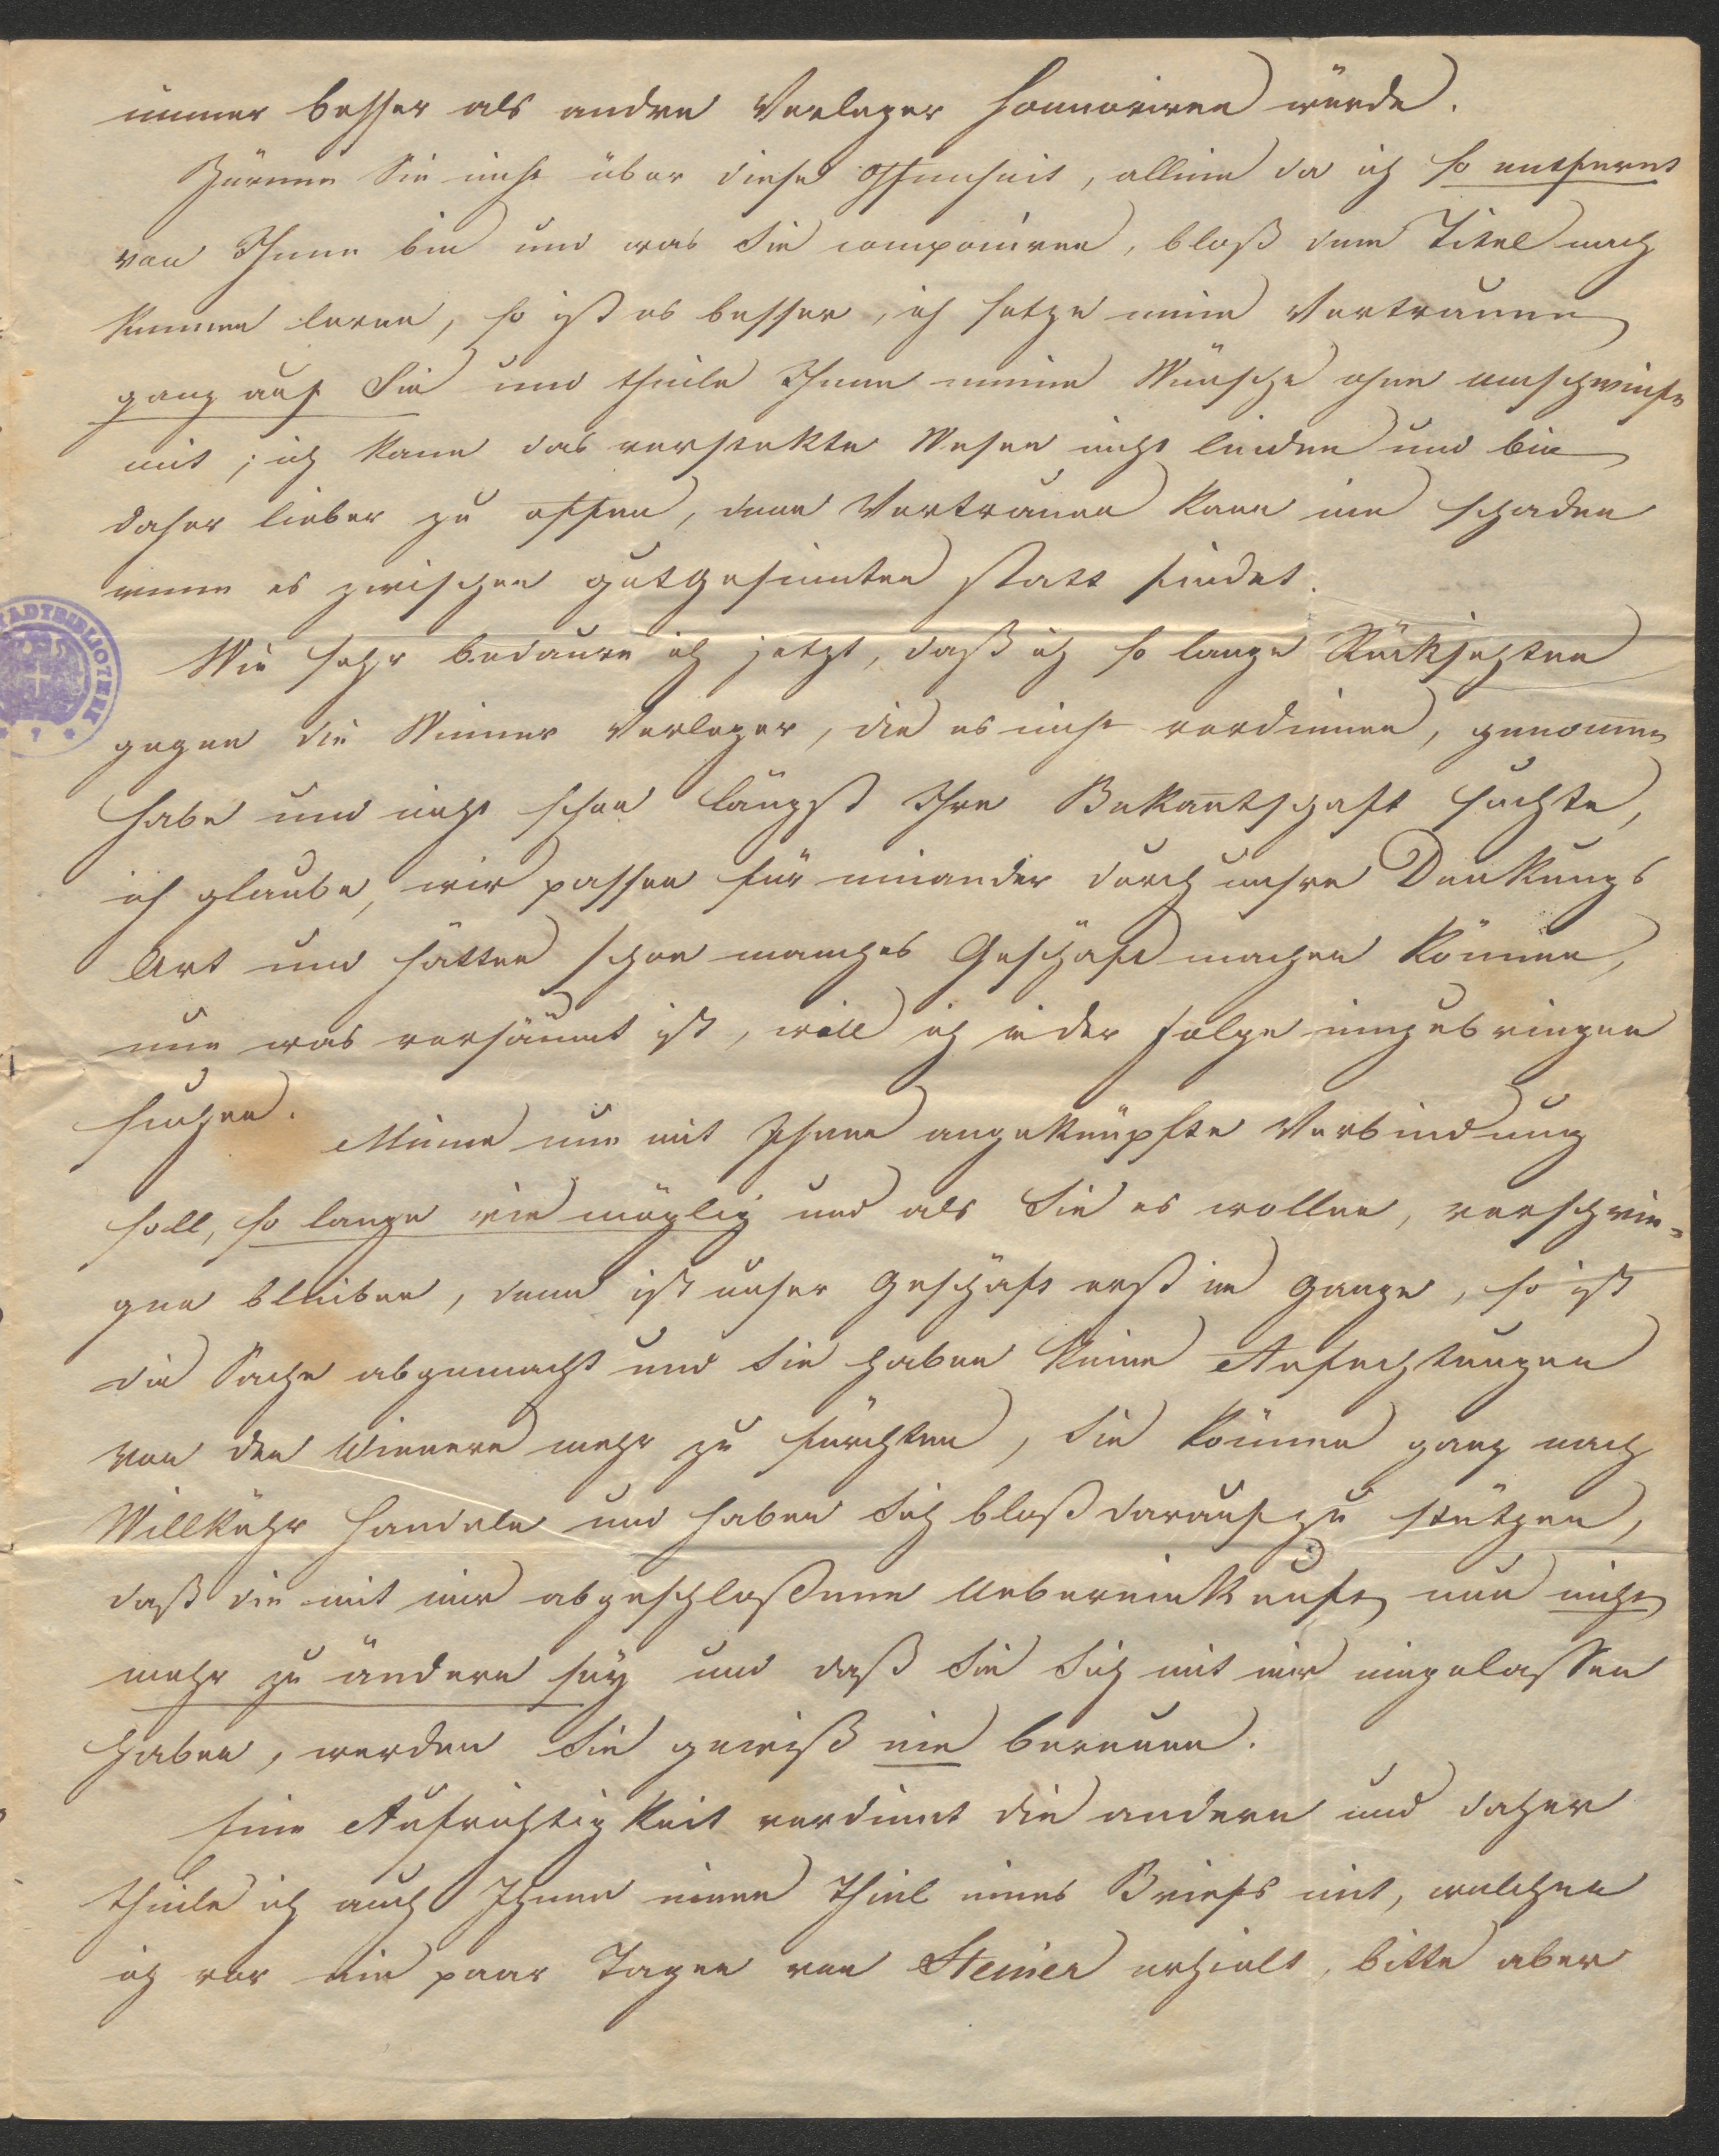 immer besser als andre Verleger honnoriren würde.
Zürnen Sie nicht über diese Offenheit, allein da ich so entfernt
von Ihnen bin und was Sie componiren, bloß dem Titel nach
kennen lerne, so ist es besser, ich setze mein Vertrauen
ganz auf Sie und theile Ihnen meine Wünsche ohne umschweife
mit; ich kann das verstekte Wesen nicht leiden und bin
daher lieber zu offen, denn Vertrauen kann nie schaden
wenn es zwischen gutgesinnten statt findet.
Wie sehr bedaure ich jetzt, daß ich so lange Rücksichten
gegen die Wiener Verleger, die es nicht verdienen, genommen
habe und nicht schon längst Ihre Bekan̄tschaft suchte,
ich glaube, wir passen für einander durch unsre Denkungs
Art und hätten schon manches Geschäft machen können,
nun was versäumt ist, will ich in der Folge einzubringen
suchen. Meine nun mit Ihnen angeknüpfte Verbindung
soll, so lange wie möglich und als Sie es wollen, verschwie-
gen bleiben, denn ist unser Geschäft erst im Gange, so ist
die Sache abgemacht und Sie haben keine Anfechtungen
von den Wienern mehr zu fürchten, Sie können ganz nach
Willkühr handeln und haben Sich bloß darauf zu stützen,
daß die mit mir abgeschloßene Uebereinkunft nun nicht
mehr zu ändern sey und daß Sie Sich mit mir eingelassen
haben, werden Sie gewiß nie bereuen.
Eine Aufrichtigkeit verdient die andere und daher
theile ich auch Ihnen einen Theil eines Briefs mit, welchen
ich vor ein paar Tagen von Steiner erhielt, bitte aber
STADTBIBLIOTHEK